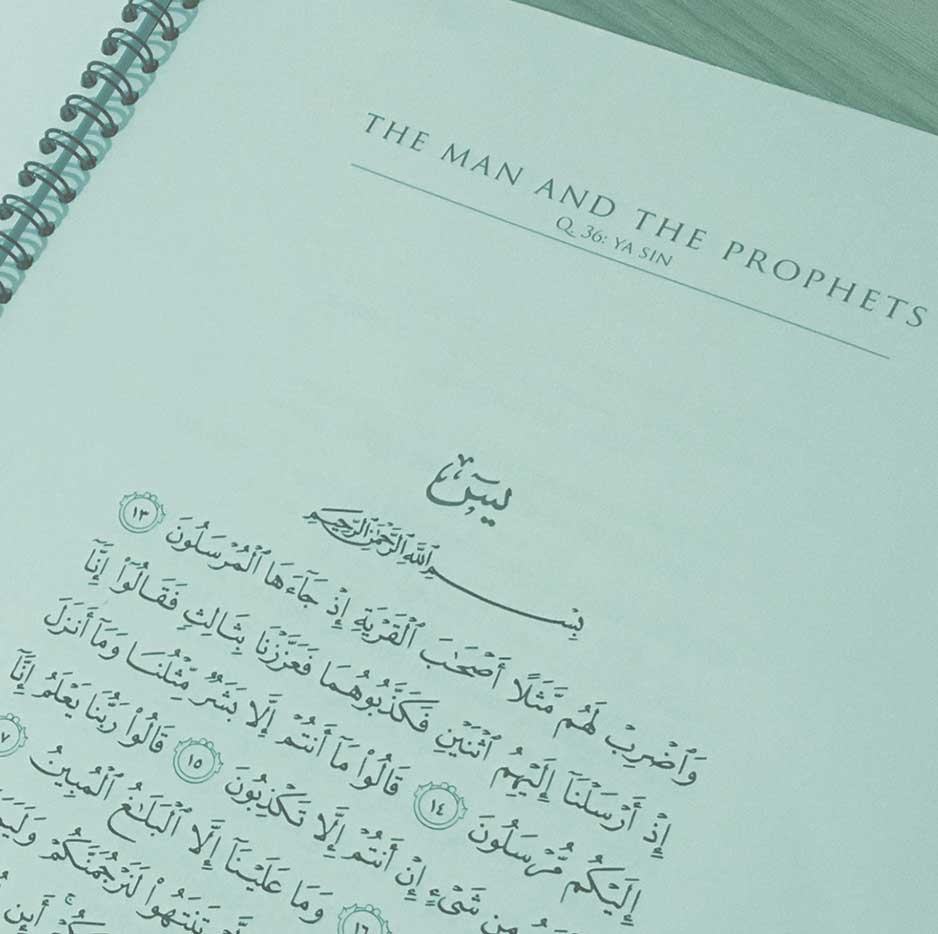 THE MAN AND THE PROPHETS
Q. 36: YA SIN
يسٓ
بِسْمِ ٱللَّهِ ٱلرَّحْمَٰنِ ٱلرَّحِيمِ
وَٱضْرِبْ لَهُم مَّثَلًا أَصْحَٰبَ ٱلْقَرْيَةِ إِذْ جَآءَهَا ٱلْمُرْسَلُونَ ١٣
إِذْ أَرْسَلْنَآ إِلَيْهِمُ ٱثْنَيْنِ فَكَذَّبُوهُمَا فَعَزَّزْنَا بِثَالِثٍ فَقَالُوٓا۟ إِنَّآ
إِلَيْكُم مُّرْسَلُونَ ١٤ قَالُوا۟ مَآ أَنتُمْ إِلَّا بَشَرٌ مِّثْلُنَا وَمَآ أَنزَلَ
مِن شَىْءٍ إِنْ أَنتُمْ إِلَّا تَكْذِبُونَ ١٥ قَالُوا۟ رَبُّنَا يَعْلَمُ إِنَّآ
١٦ وَمَا عَلَيْنَآ إِلَّا ٱلْبَلَٰغُ ٱلْمُبِينُ ٧
تَنتَهُوا۟ لَنَرْجُمَنَّكُمْ
أَئِن